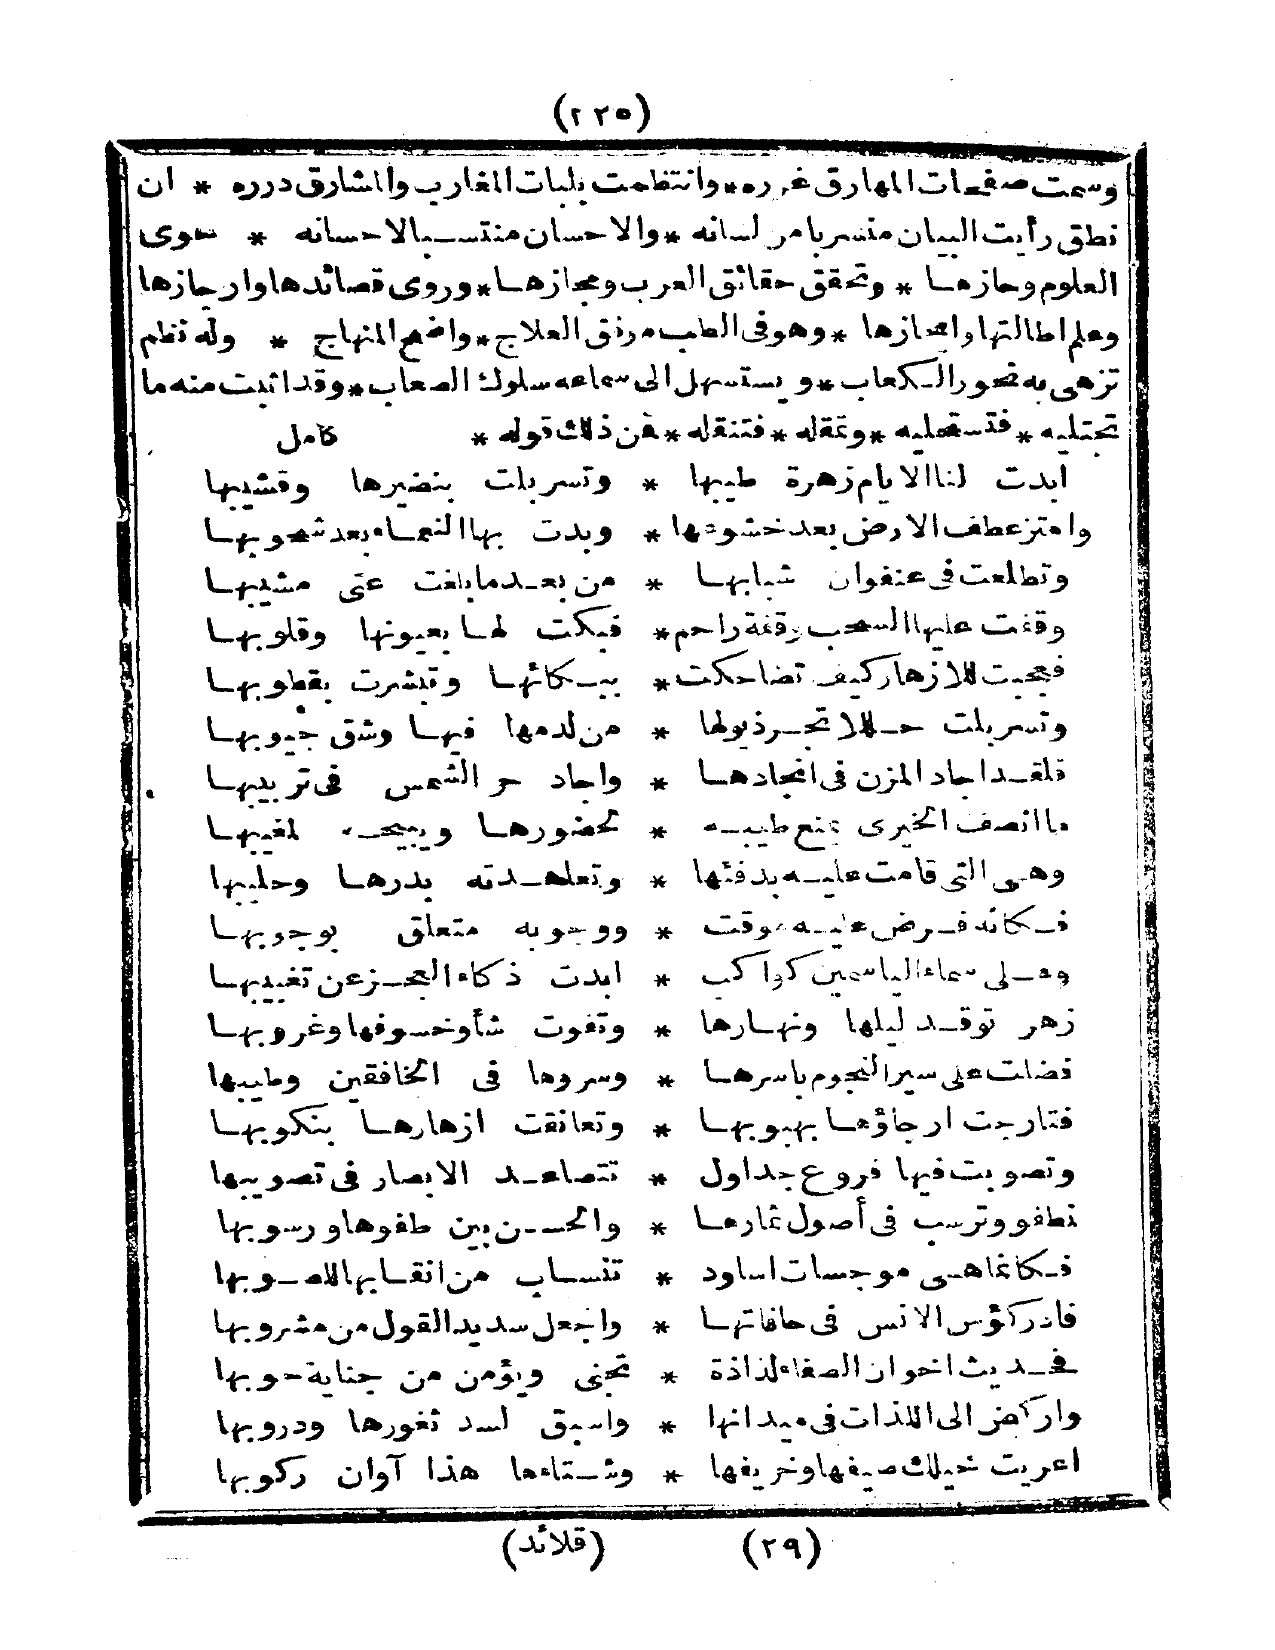 (٢٢٥)
وسمت صفحات المهارق غرره * وانتظمت بلبات المغارب والمشارق درره * ان
نطق رأيت البيان منسربا من لسانه * والاحسان منتسبا لاحسانه * حوى
العلوم وحازها * وتحقق حقائق العرب ومجازها * وروى قصائدها وارجازها
وعلم اطالتها وايجازها * وهو فى الطب مرفق العلاج * واضح المنهاج * وله نظم
تزهى به نحور الكعاب * ويستسهل الى سماعه سلوك الصعاب * وقد اثبت منه ما
تجتليه * فتستحليه * وتعقله * فتنقله * فمن ذلك قوله * كامل
ابدت لنا الايام زهرة طيبها * وتسربلت بنضيرها وقشيبها
واهتز عطف الارض بعد خشوعها * وبدت بها النعماء بعد شحوبها
وتطلعت فى عنفوان شبابها * من بعد ما بلغت عتى مشيبها
وقفت عليها السحب وقفة راحم * فبكت لها بعيونها وقلوبها
فعجبت للازهار كيف تضاحكت * ببكائها وتبشرت بقطوبها
وتسربلت حللا تجر ذيولها * من لدمها فيها وشق جيوبها
فلقد اجاد المزن فى انجادها * واجاد حر الشمس فى تربيبها
ما انصف الخيرى يمنع طيبه * لحضورها ويبيحه لمغيبها
وهى التى قامت عليه بدفئها * وتعاهدته بدرها وحليبها
فكانه فرض عليه موقت * ووجوبه متعلق بوجوبها
وعلى سماء الياسمين كواكب * ابدت ذكاء العجز عن تغييبها
زهر توقد ليلها ونهارها * وتفوت شأو خسوفها وغروبها
فضلت على سير النجوم باسرها * وسروها فى الخافقين وطيبها
فتارجت ارجاؤها بهبوبها * وتعانقت ازهارها بنكوبها
وتصوبت فيها فروع جداول * تتصاعد الابصار فى تصويبها
تطفو وترسب فى أصول ثمارها * والحسن بين طفوها ورسوبها
فكانما هى موجسات اساود * تنساب من انقابها للصوبها
فادر كؤس الانس فى حافاتها * واجعل سديد القول من مشروبها
فحديث اخوان الصفاء لذاذة * تجنى ويؤمن من جناية حوبها
واركض الى اللذات فى ميدانها * واسبق لسد ثغورها ودروبها
اعريت خيلك صيفها وخريفها * وشتاءها هذا آوان ركوبها
(٢٩) (قلائد)